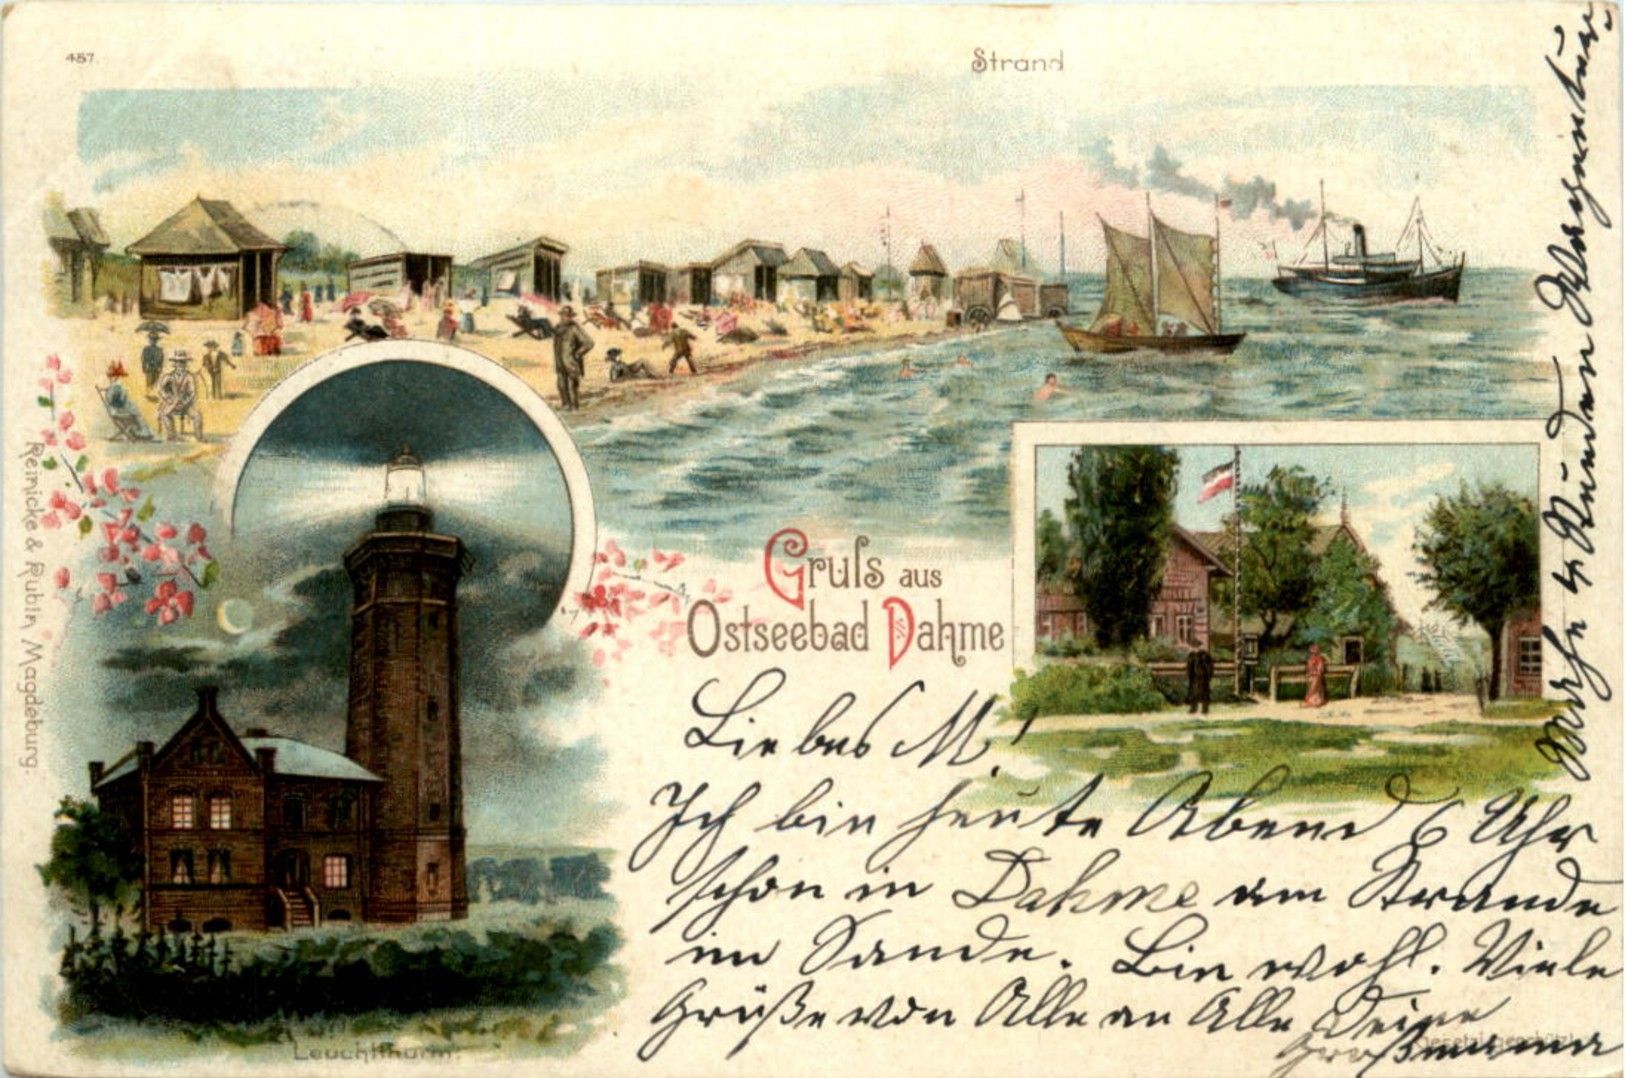 457.
Strand
Gruſs aus
Ostseebad Dahme
Reinicke & Rubin, Magdeburg.
Leuchtthurm.
Liebes M!
Ich bin heute Abend 6 Uhr
schon in Dahme am Strande
im Sande. Bin wohl. Viele
Grüße von Alle an Alle Deine
Großmama